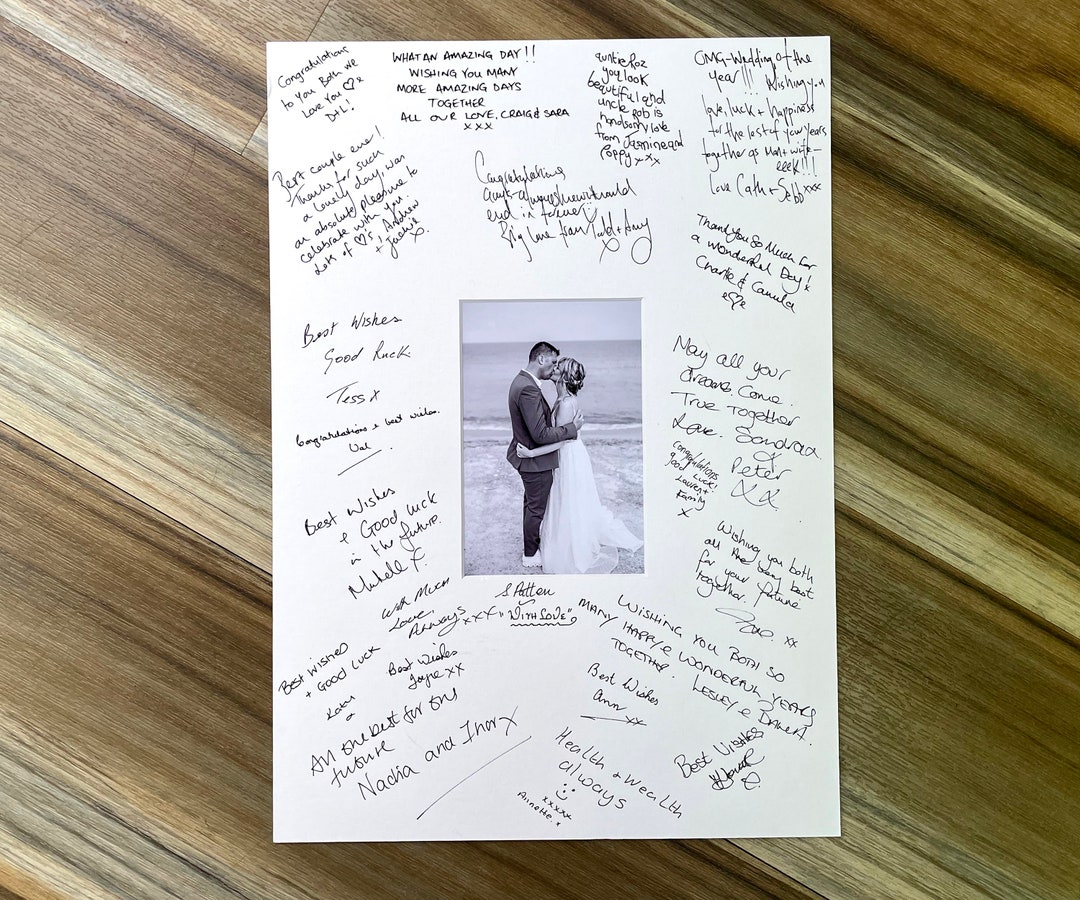 Congratulations
to You Both we
Love You ♡ x
D+L!
WHAT AN AMAZING DAY!!
WISHING YOU MANY
MORE AMAZING DAYS
TOGETHER
ALL OUR LOVE, CRAIG & SARA
xxx
auntie Roz
you look
beautiful and
uncle Rob is
handsom love
from Jasmine and
Poppy xxx
OMG-Wedding of the
year!!! Wishing you
love, luck + happiness
for the rest of your years
together as Man + wife -
eeek!!!
Love Cath + Sebb xxx
Best couple ever!
Thanks for such
a lovely day, was
an absolute pleasure to
celebrate with you!
Lots of ♡'s, Andrew
+ Jackie x
Congratulations
end in
Big love from + Amy
x
Thank you So Much For
a wonderful Day! x
Charlie & Camila
Best Wishes
Good Luck
Tess x
Congratulations & best wishes.
Val
May all your
dreams. Come.
True Together
Love. Sandraa
Peter
xx
Congratulations
good luck!
Lauren +
Family
x
Best Wishes
& Good luck
in the future.
Michelle x.
Wishing you both
all the very best
for your future
together.
xx
With Much
Love,
Always
xxx
S Patten
"WITH LOVE"
WISHING YOU BOTH SO
MANY HAPPY & WONDERFUL YEARS
TOGETHER.
LESLEY &
Best Wishes
+ Good Luck
Best Wishes
Joyce xx
Best Wishes
Ann
xx
All the best for the
future
Nadia and x
Health + Wealth
always
:)
xxxxx
Annette. x
Best Wishes